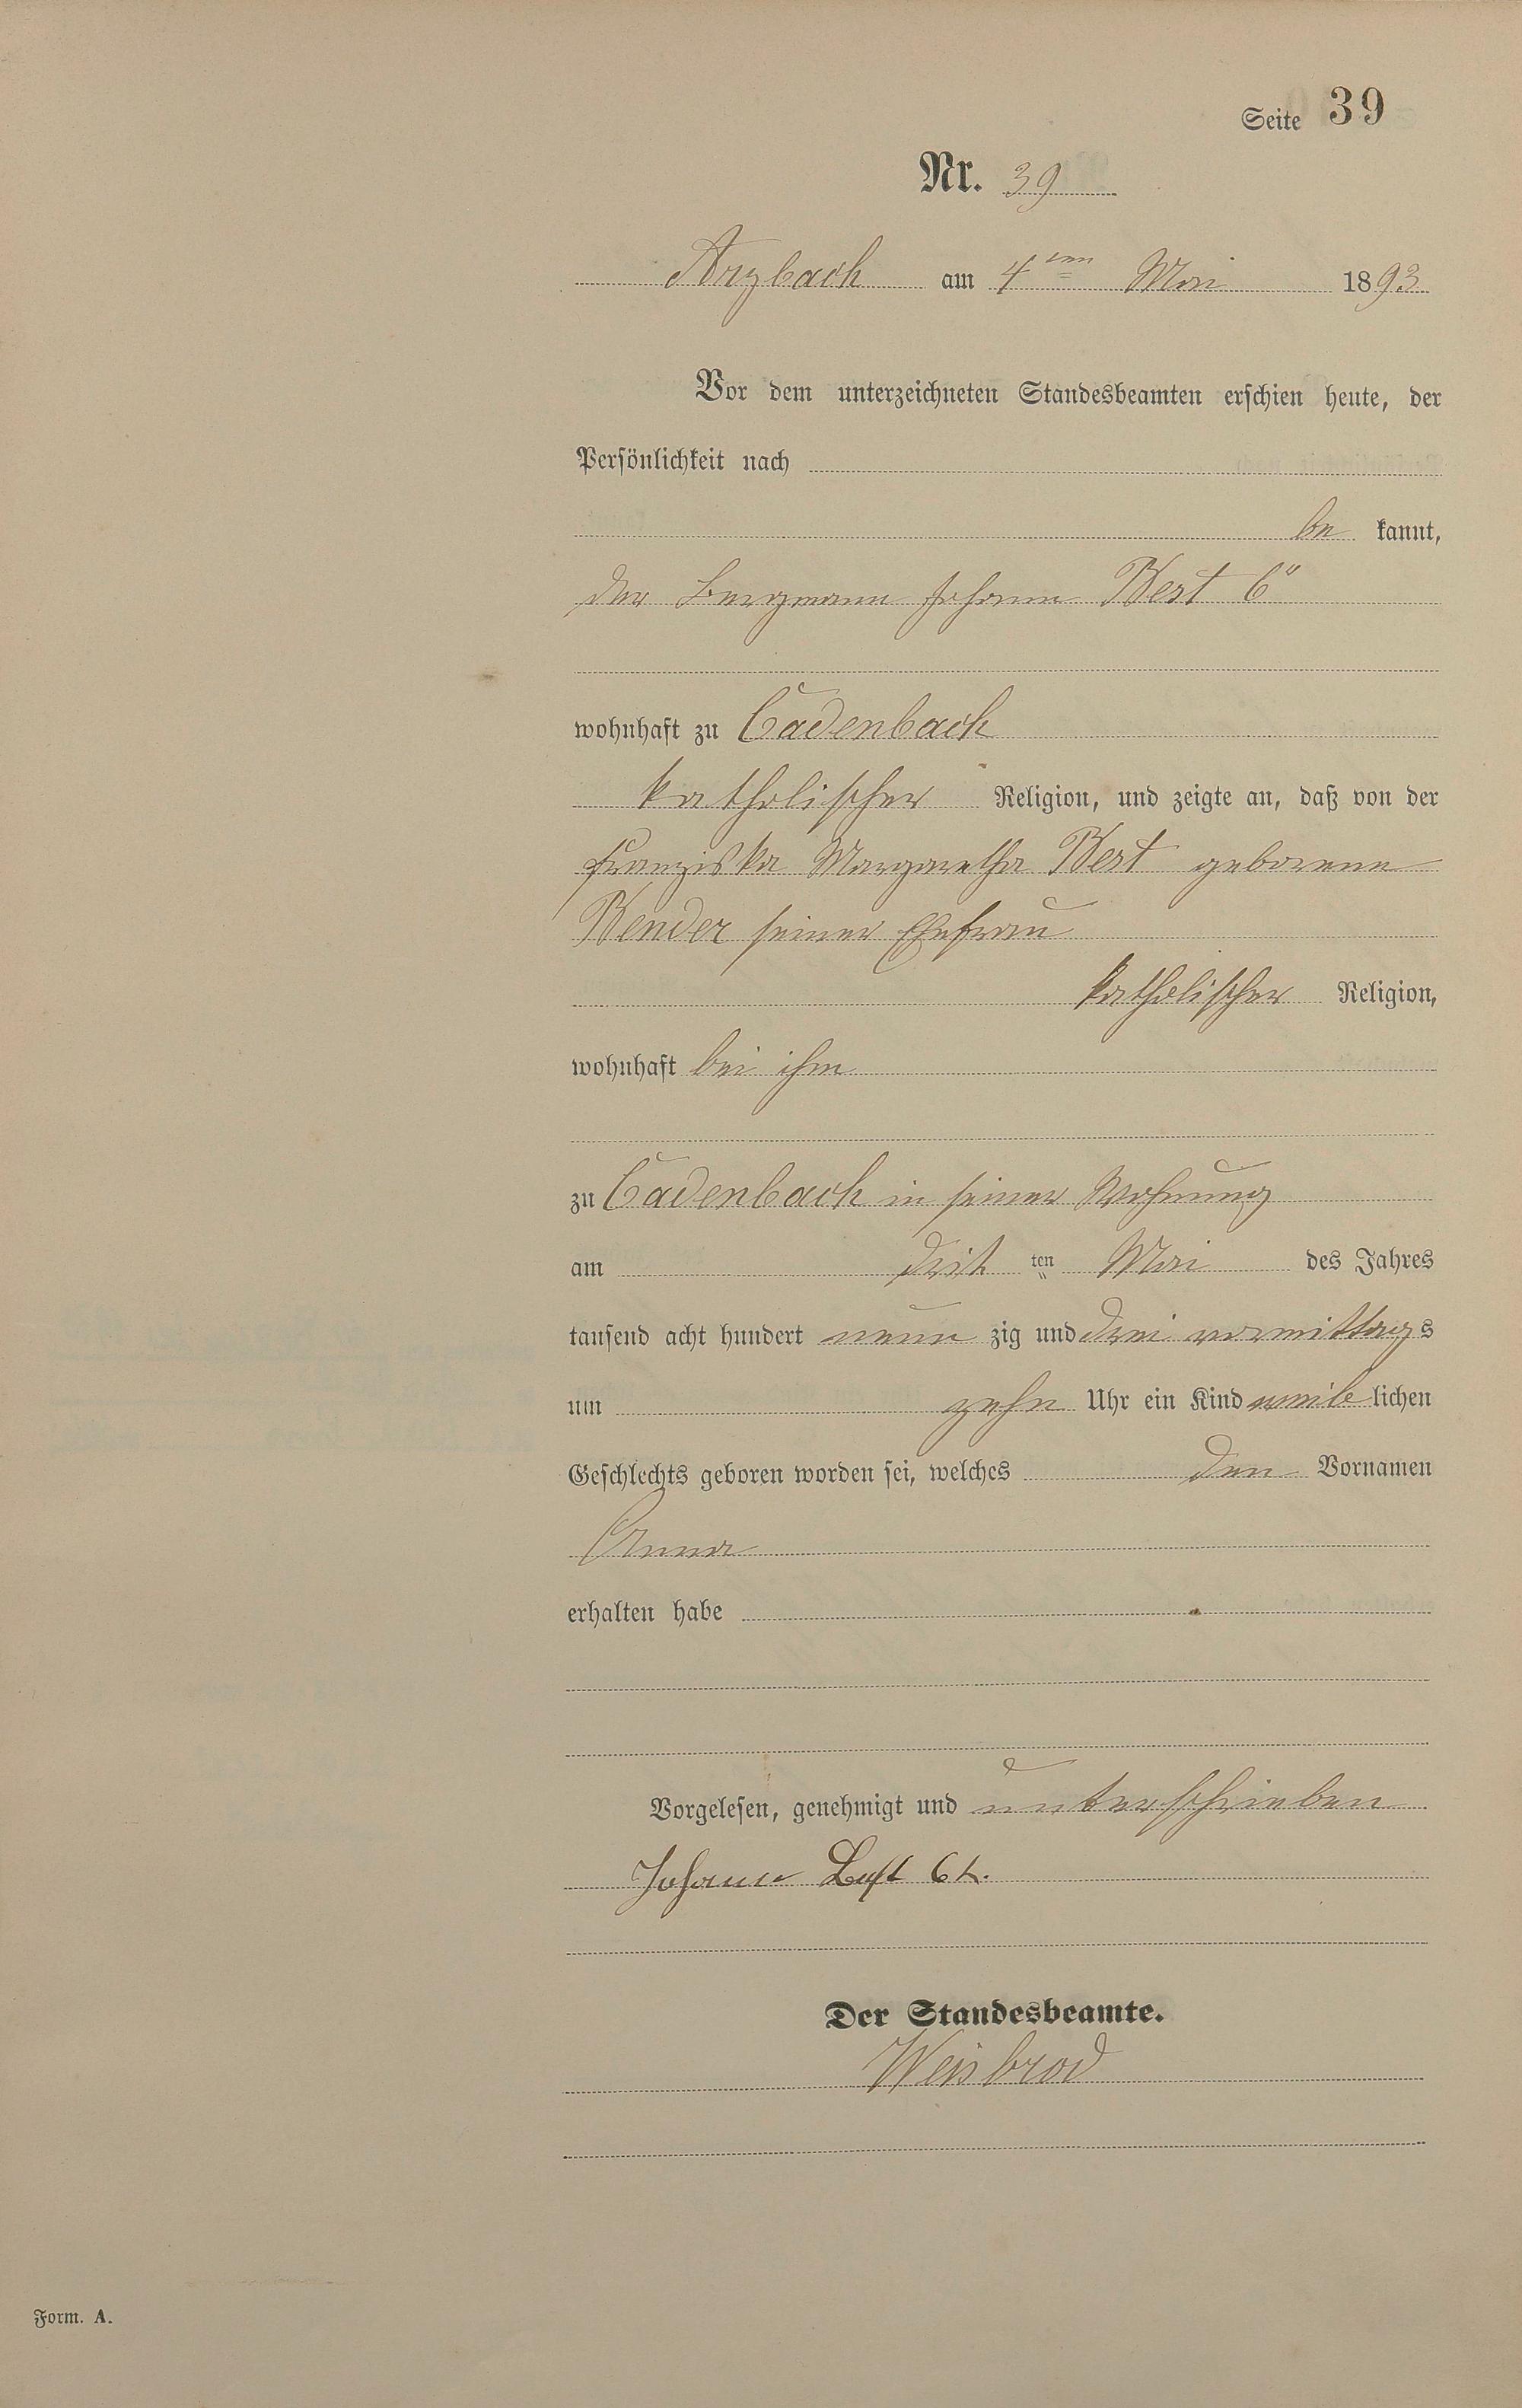 Seite 39
Nr. 39
Arzbach am 4ten Mai 1893
Vor dem unterzeichneten Standesbeamten erschien heute, der
Persönlichkeit nach
be kannt,
der Bergmann Johann Best 6"
wohnhaft zu Cadenbach
katholischer Religion, und zeigte an, daß von der
Franziska Margaretha Best geborene
Bender seiner Ehefrau
katholischer Religion,
wohnhaft bei ihm
zu Cadenbach in seiner Wohnung
am drit ten Mai des Jahres
tausend acht hundert neun zig und drei vormittags
um zehn Uhr ein Kind weib lichen
Geschlechts geboren worden sei, welches den Vornamen
Anna
erhalten habe
Vorgelesen, genehmigt und unterschrieben
Johann Best
Der Standesbeamte.
Weisbrod
Form. A.